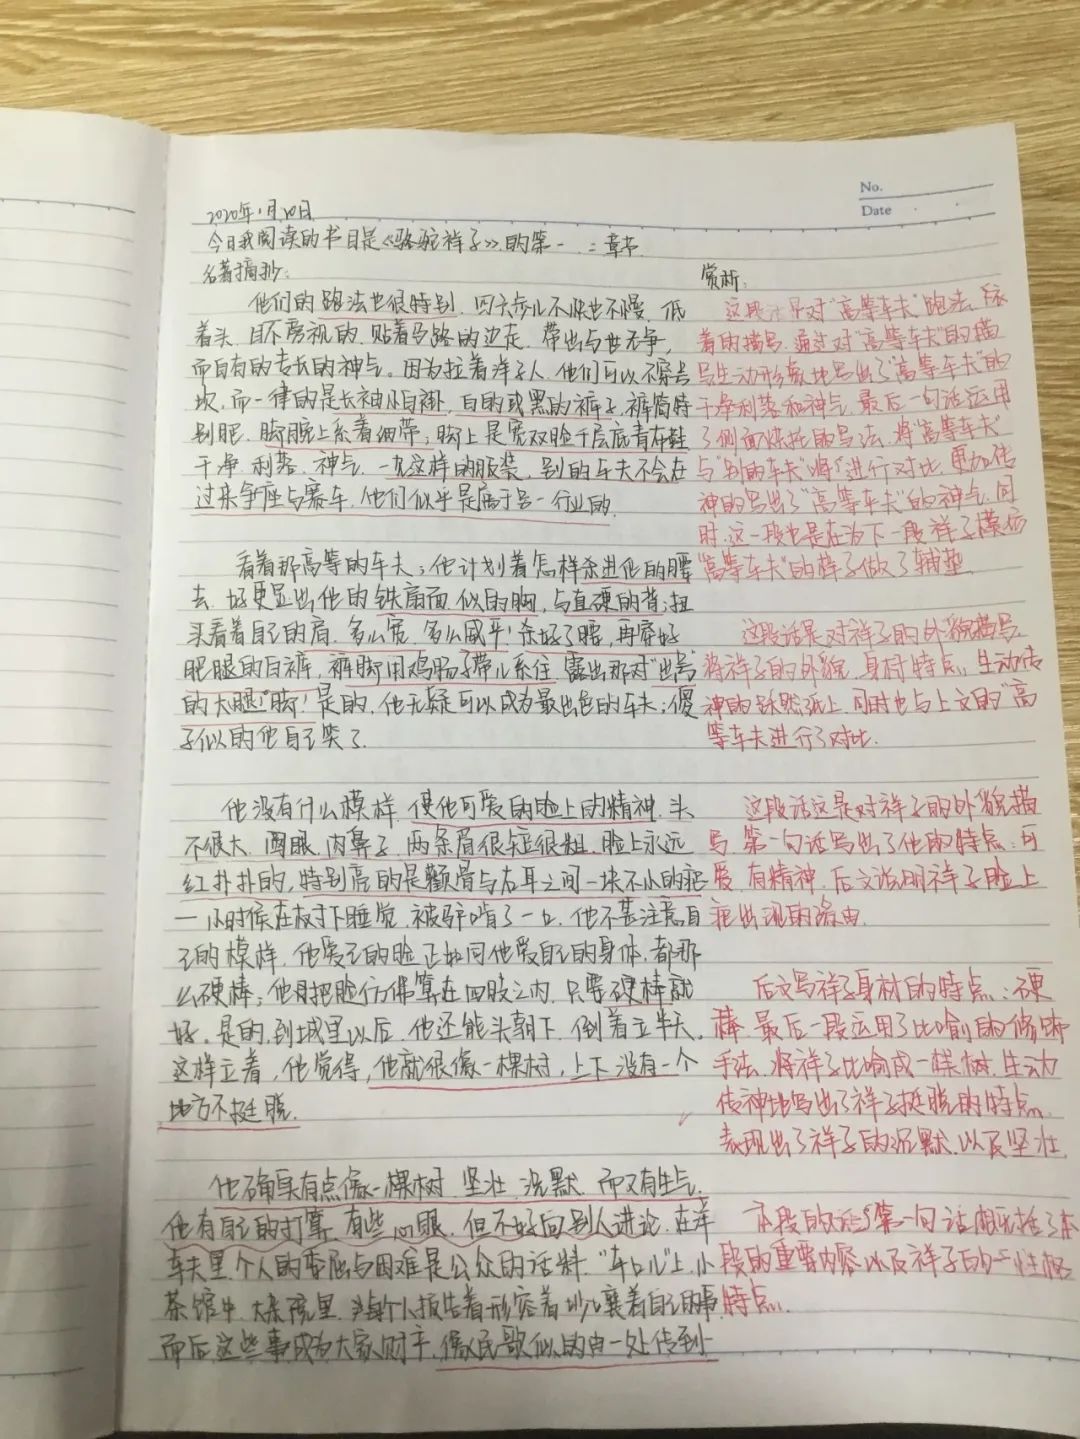 No.
Date
2020年1月20日
今日我阅读的书目是《骆驼祥子》的第一、二章节.
名著摘抄:
他们的跑法也很特别,四六步儿不快也不慢,低
着头,目不旁视的,贴着马路的边走,带出与世无争,
而自有的专长的神气。因为拉着洋子人,他们可以不穿号
坎,而一律的是长袖小白褂,白的或黑的裤子,裤筒特
别肥,脚腕上系着细带;脚上是宽双脸千层底青布鞋
干净,利落,神气.一见这样的服装,别的车夫不会在
过来争座与赛车,他们似乎是属于另一行业的.
看着那高等的车夫,他计划着怎样杀进他的腰
去,好更显出他的铁扇面似的胸,与直硬的背;扭
头看着自己的肩,多么宽,多么威平!杀好了腰,再穿好
肥腿的白裤,裤脚用鸡肠子带儿系住,露出那对"出号"
的大腿"脚!是的,他无疑可以成为最出色的车夫;傻
子似的他自己笑了.
他没有什么模样,使他可爱的脸上的精神.头
不很大,圆眼,肉鼻子,两条眉很短很粗,脸上永远
红扑扑的,特别亮的是颧骨与右耳之间一块不小的疤
一小时候在树下睡觉,被驴啃了一口.他不甚注意自
己的模样,他爱己的脸正如同他爱自己的身体,都那
么硬棒;他把脸仿佛算在四肢之内,只要硬棒就
好.是的,到城里以后,他还能头朝下,倒着立半天.
这样立着,他觉得,他就很像一棵树,上下没有一个
地方不挺脱.
他确实有点像一棵树,坚壮,沉默,而又有生气.
他有自己的打算,有些心眼,但不好向别人讲论.在洋
车夫里,个人的委屈与困难是公众的话料,"车口儿"上,小
茶馆中,大杂院里,每个人报告着形容着吵儿嚷着自己的事,
而后这些事成为大家财产,像民歌似的由一处传到一
赏析:
这段话是对"高等车夫"跑法,
着的描写,通过对"高等车夫"的描
写生动形象地写出了"高等车夫"的
干净利落和神气,最后一句话运用
了侧面烘托的写法,将"高等车夫"
与"别的车夫"进行对比,更加传
神的写出了"高等车夫"的神气,同
时,这一段也是在为下一段祥子模仿
"高等车夫"的样子做了铺垫.
这段话是对祥子的外貌描写,
将祥子的外貌,身材特点,生动传
神的跃然纸上,同时也与上文的"高
等车夫进行了对比.
这段话这是对祥子的外貌描
写,第一句话写出了他的特点:可
爱,有精神,后文说明祥子脸上
疤出现的缘由.
后文写祥子身材的特点:硬
棒,最后一段运用了比喻的修辞
手法,将祥子比喻成一棵树,生动
传神地写出了祥子挺脱的特点,
表现出了祥子的沉默以及坚壮.
本段的第一句话概括了本
段的重要内容以及祥子的一性格
特点.